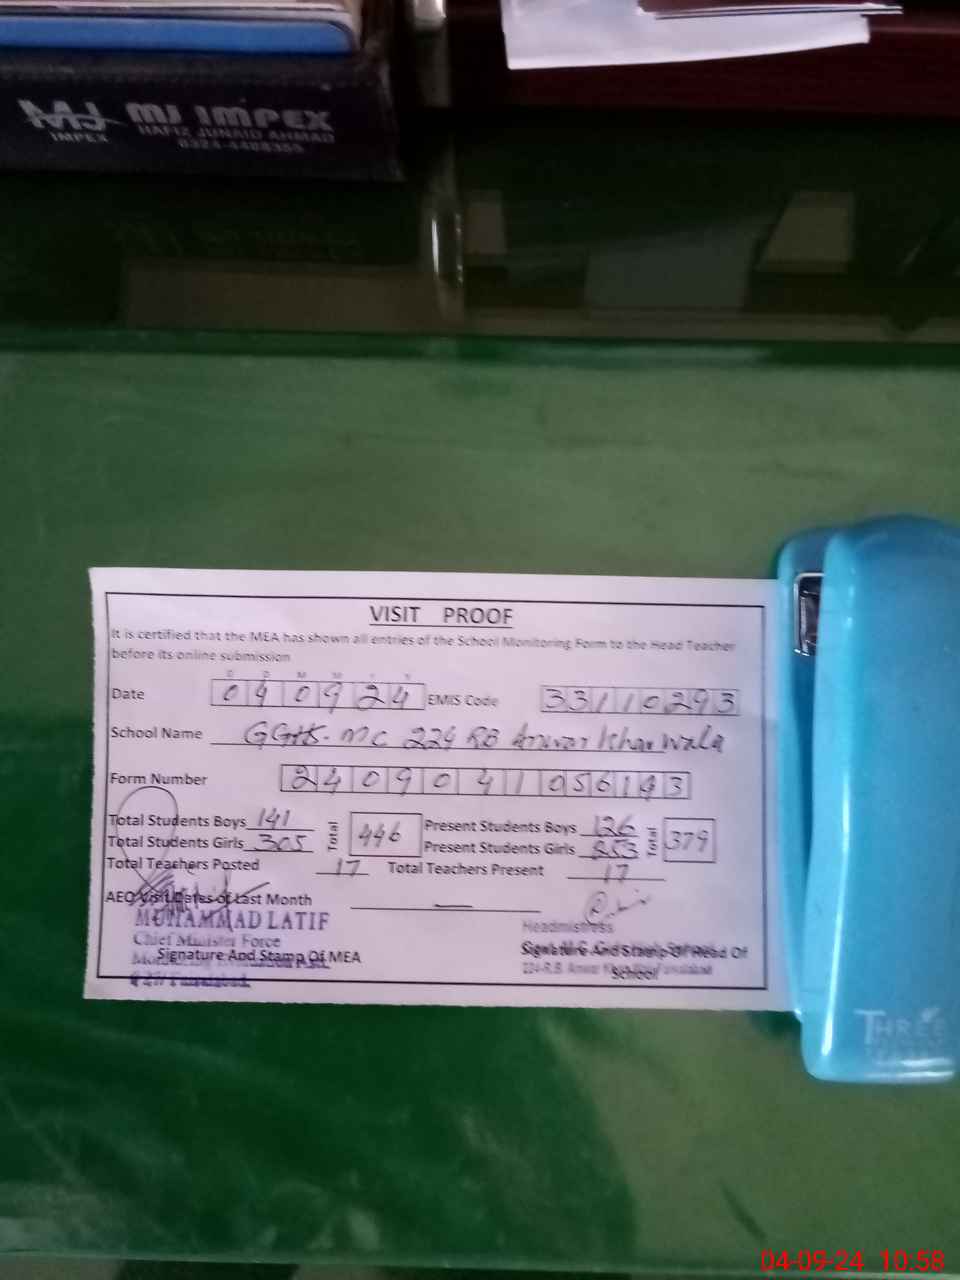 MJ IMPEX
MJ IMPEX
HAFIZ JUNAID AHMAD
0324-4488355
VISIT PROOF
It is certified that the MEA has shown all entries of the School Monitoring Form to the Head Teacher
before its online submission
D D M M Y Y
Date 040924 EMIS Code 33110293
School Name GGHS. MC 224 RB Anwar Khan Wala
Form Number 2409041056193
Total Students Boys 141 Total 446 Present Students Boys 126 Total 379
Total Students Girls 305 Present Students Girls 253
Total Teachers Posted 17 Total Teachers Present 17
AEO Visit Dates of Last Month —
MUHAMMAD LATIF
Chief Minister Force
Signature And Stamp Of MEA
Headmistress
Signature And Stamp Of Head Of
School
224-R.B. Anwar
THREE
04-09-24 10:58